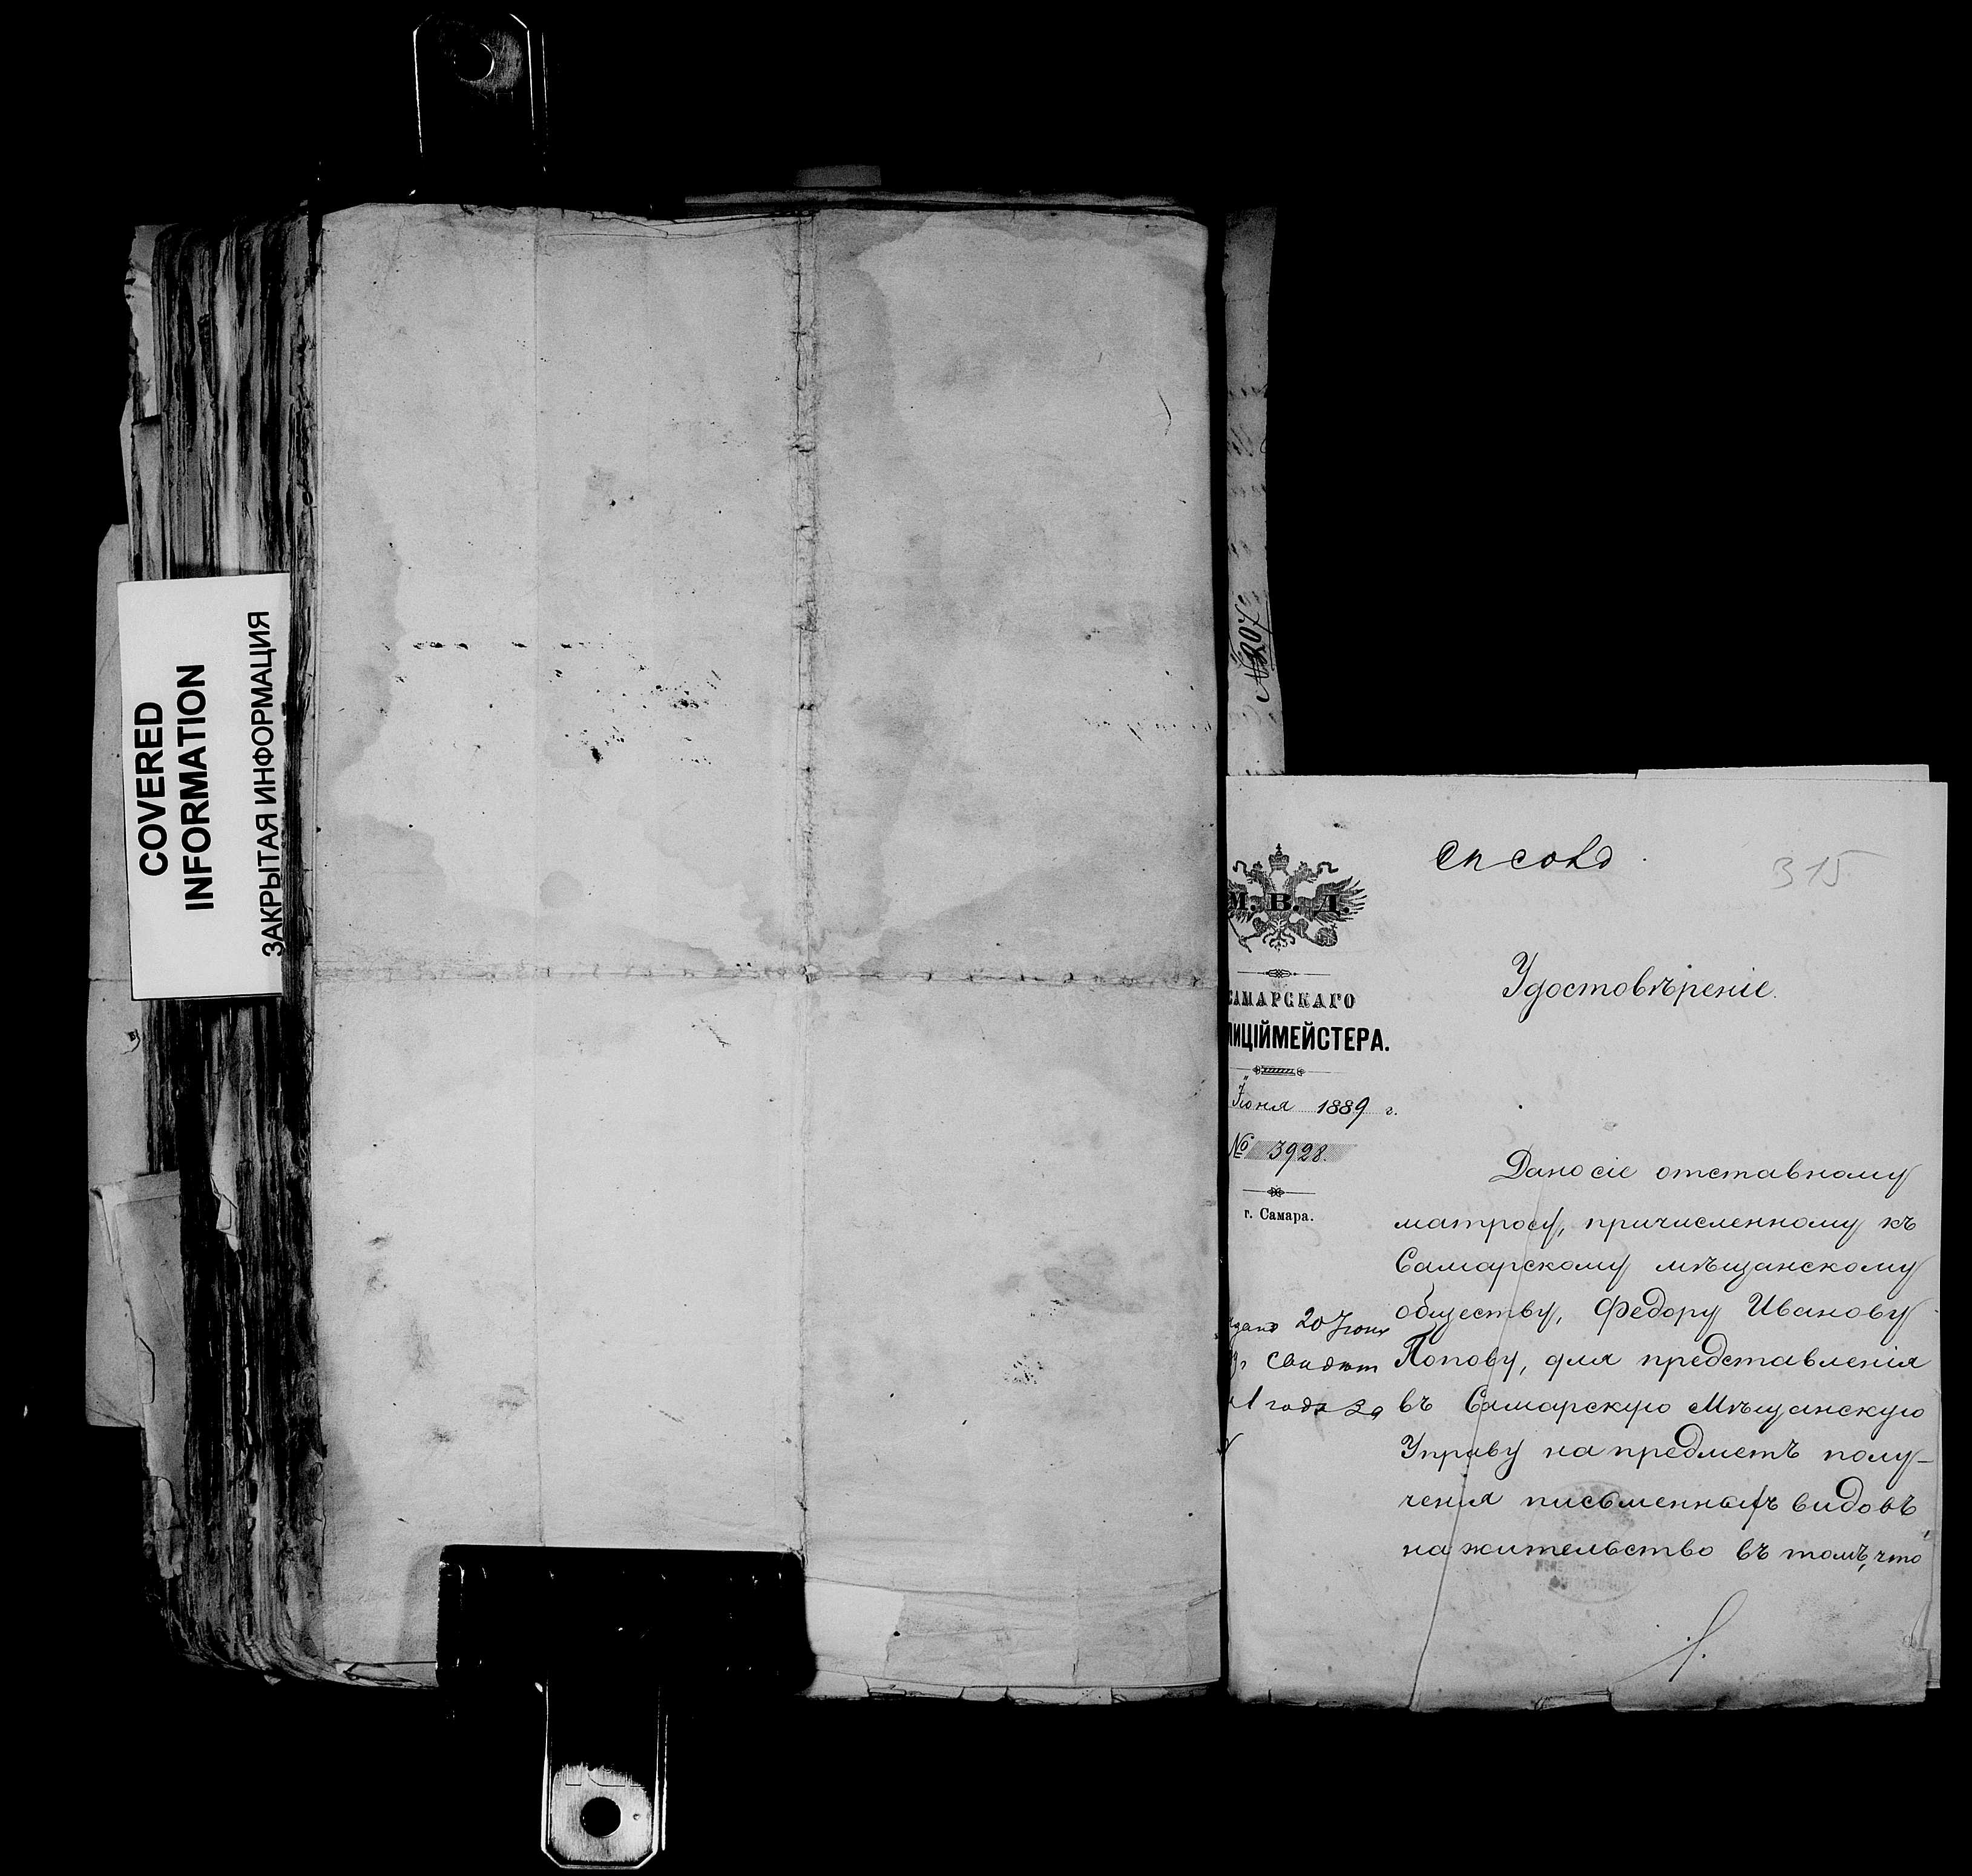 COVERED
INFORMATION
ЗАКРЫТАЯ ИНФОРМАЦИЯ
№ 207
315
М. В. Д.
САМАРСКАГО
ЛИЦІЙМЕЙСТЕРА.
Іюня 1889 г.
№ 3928.
г. Самара.
20 Іюня
1 года
Удостовѣреніе.
Дано сіе отставному
матросу, причисленному къ
Самарскому мѣщанскому
обществу, Федору Иванову
Попову, для представленія
въ Самарскую Мѣщанскую
Управу на предметъ полу-
ченія письменныхъ видовъ
на жительство въ томъ, что